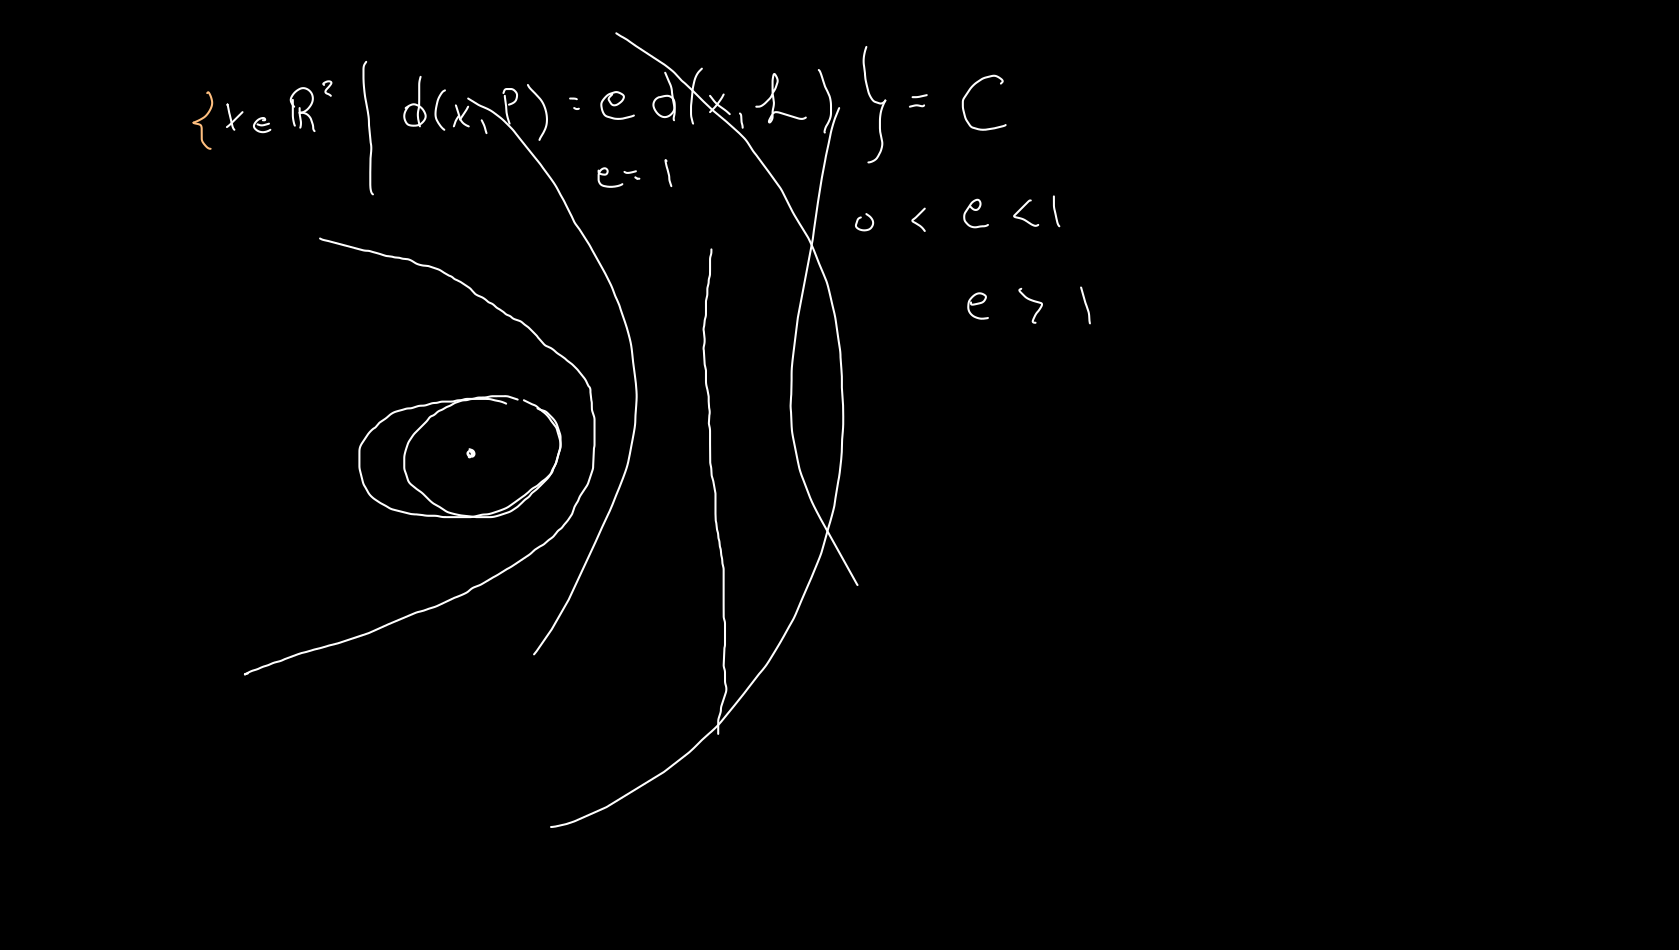 {x ∈ ℝ² | d(x, P) = e d(x, L)} = C
e = 1
0 < e < 1
e > 1